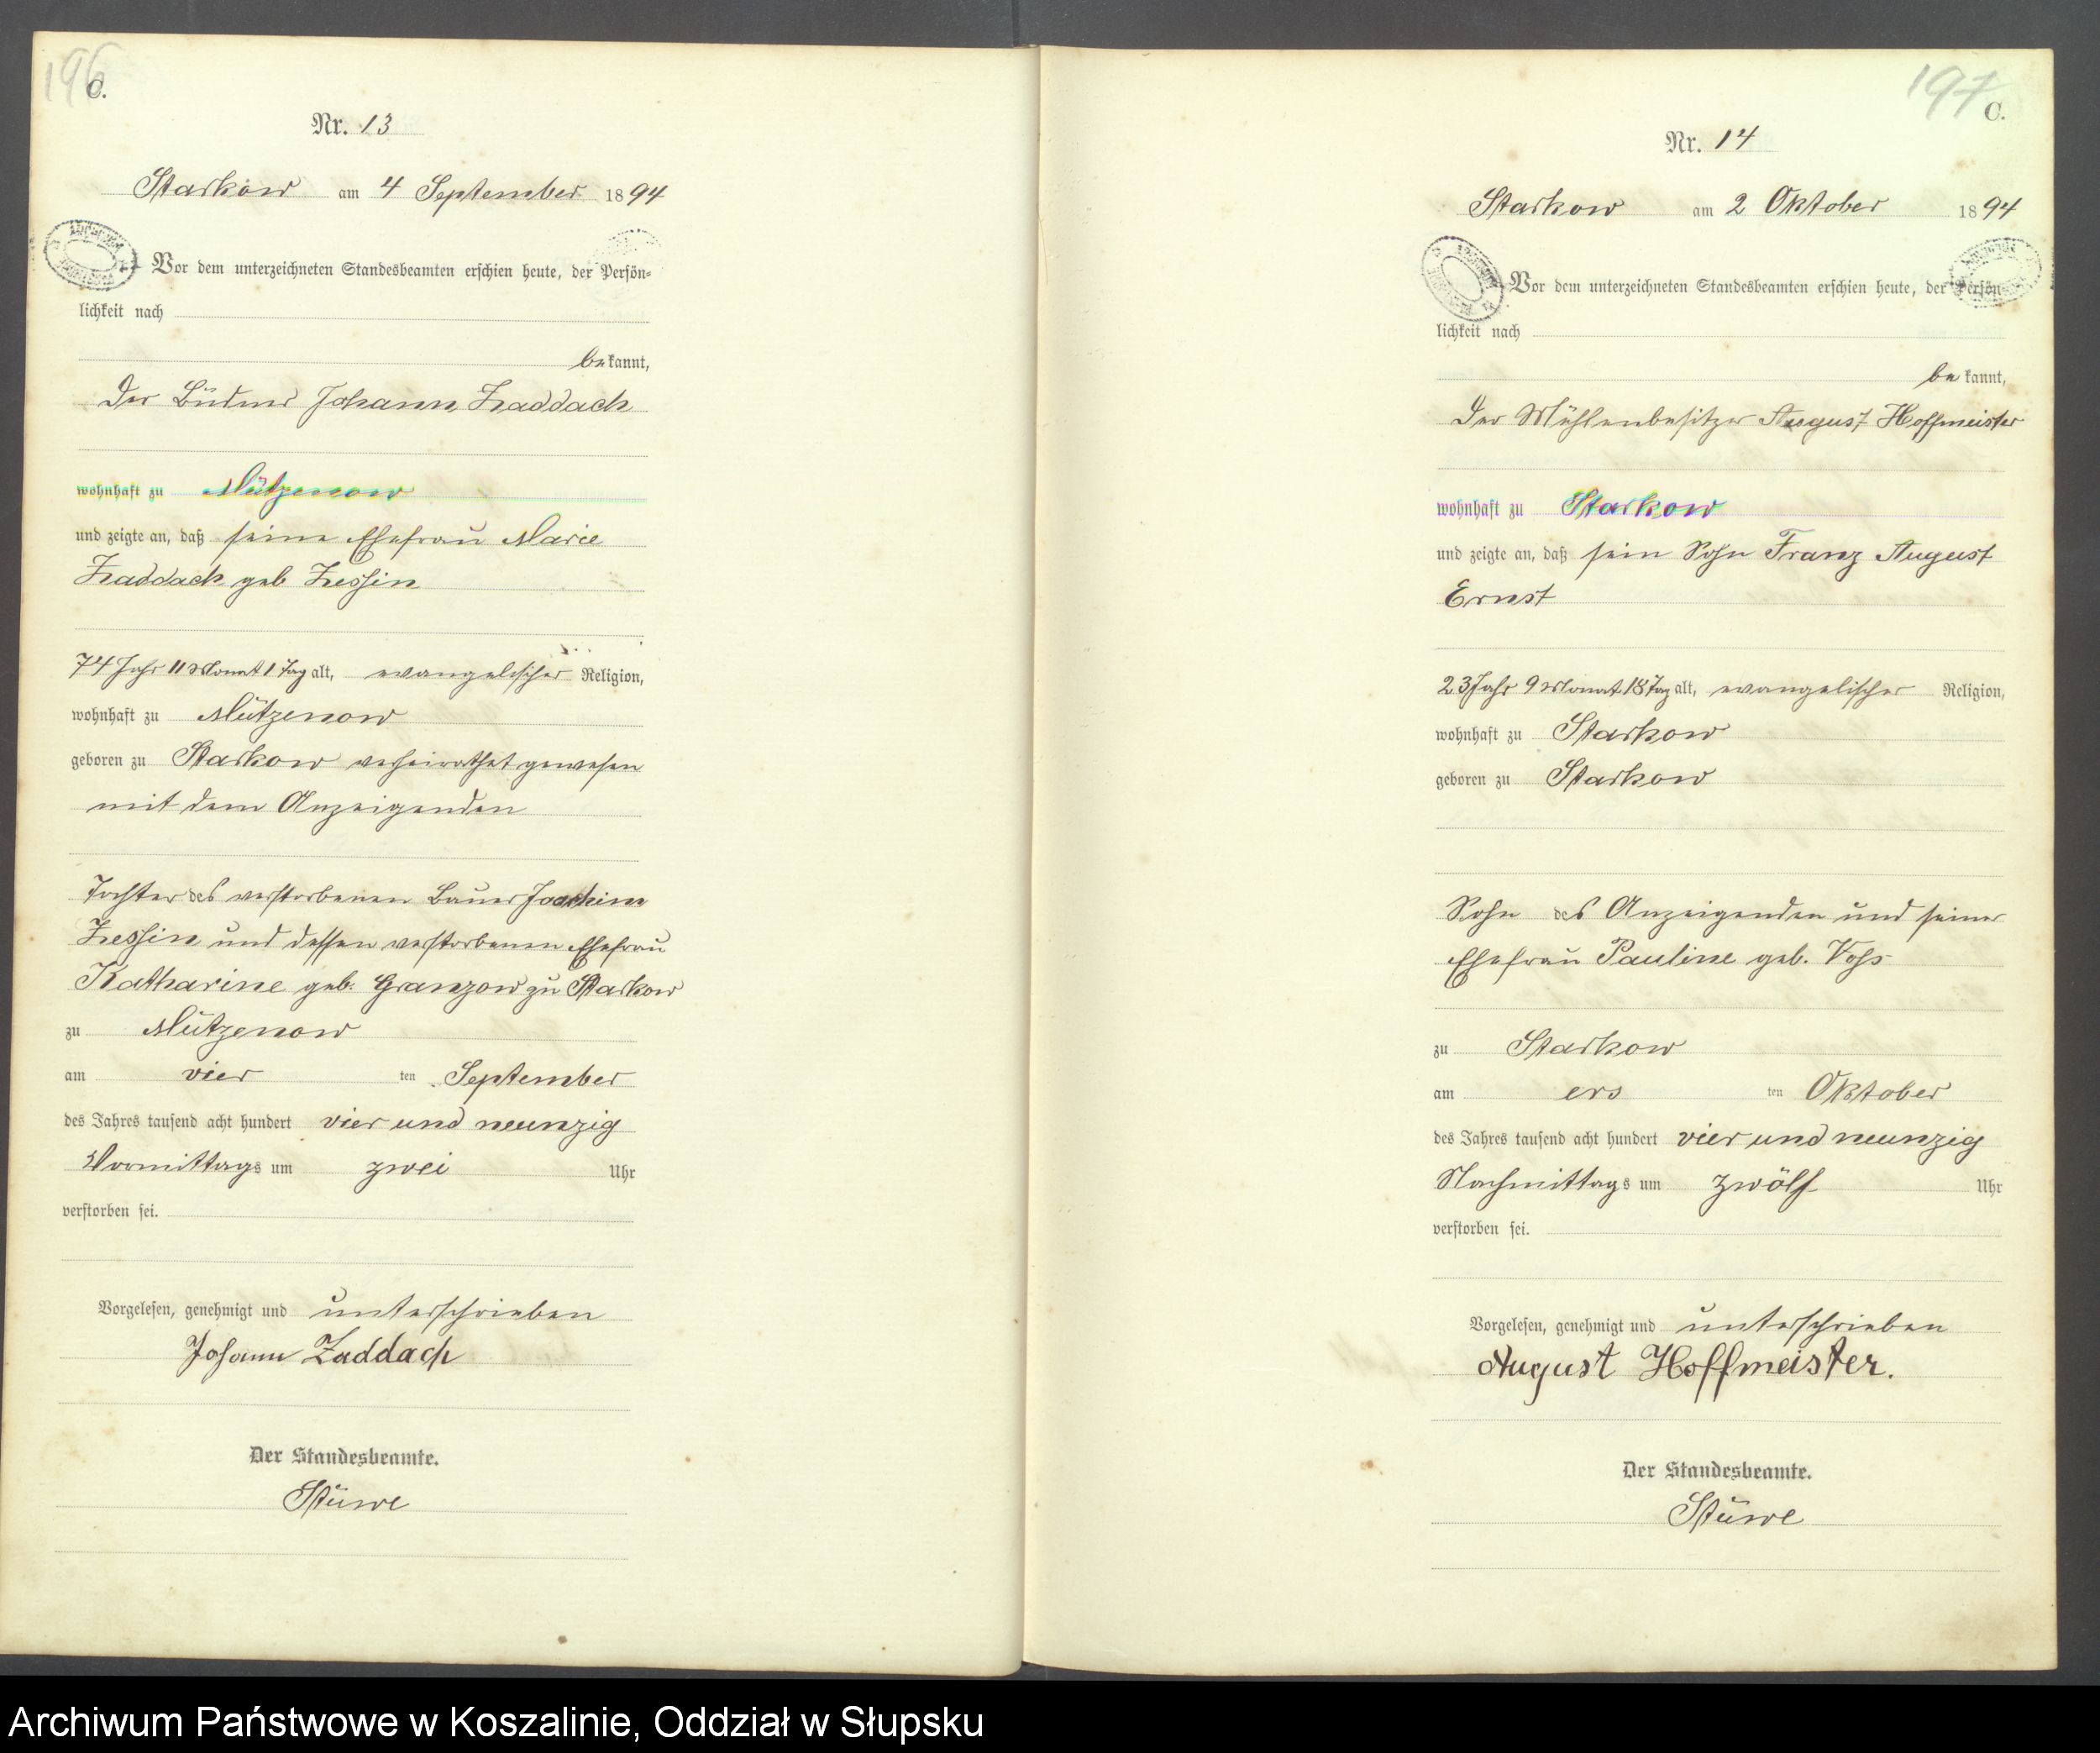 196
C.
Nr. 13
Starkow am 4 September 1894
Vor dem unterzeichneten Standesbeamten erschien heute, der Persön-
lichkeit nach
bekannt,
Der Büdner Johann Zaddach
wohnhaft zu Mützenow
und zeigte an, daß seine Ehefrau Marie
Zaddach geb Zessin
74 Jahr 11 Monat 1 Tag alt, evangelischer Religion,
wohnhaft zu Mützenow
geboren zu Starkow verheirathet gewesen
mit dem Anzeigenden
Tochter des verstorbenen Bauer Joachim
Zessin und dessen verstorbenen Ehefrau
Katharine geb. Granzow zu Starkow
zu Mützenow
am vier ten September
des Jahres tausend acht hundert vier und neunzig
Vormittags um zwei Uhr
verstorben sei.
Vorgelesen, genehmigt und unterschrieben
Johann Zaddach
Der Standesbeamte.
Stüwe
197
C.
Nr. 14
Starkow am 2 Oktober 1894
Vor dem unterzeichneten Standesbeamten erschien heute, der Persön-
lichkeit nach
be kannt,
Der Mühlenbesitzer August Hoffmeister
wohnhaft zu Starkow
und zeigte an, daß sein Sohn Franz August
Ernst
23 Jahr 9 Monat 18 Tag alt, evangelischer Religion,
wohnhaft zu Starkow
geboren zu Starkow
Sohn des Anzeigenden und seiner
Ehefrau Pauline geb. Voss
zu Starkow
am ers ten Oktober
des Jahres tausend acht hundert vier und neunzig
Nachmittags um zwölf Uhr
verstorben sei.
Vorgelesen, genehmigt und unterschrieben
August Hoffmeister.
Der Standesbeamte.
Stüwe
Archiwum Państwowe w Koszalinie, Oddział w Słupsku